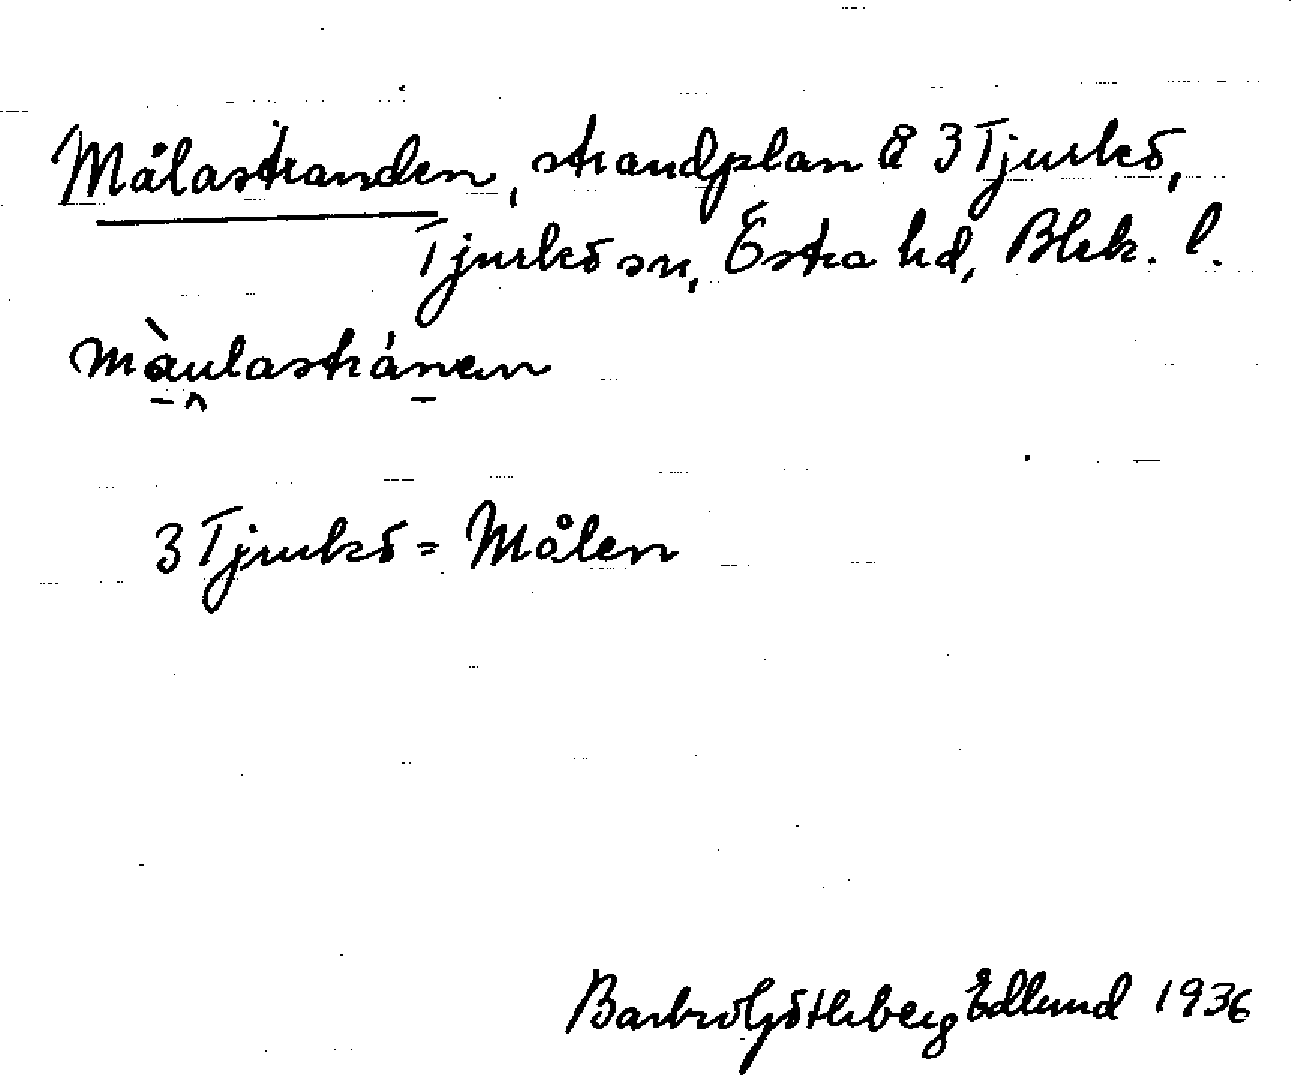 Målastranden, strandplan å 3 Tjurkö,
Tjurkö sn, Östra hd, Blek. l.
màulastránen
3 Tjurkö = Målen
Barbro Götherberg Edlund 1936